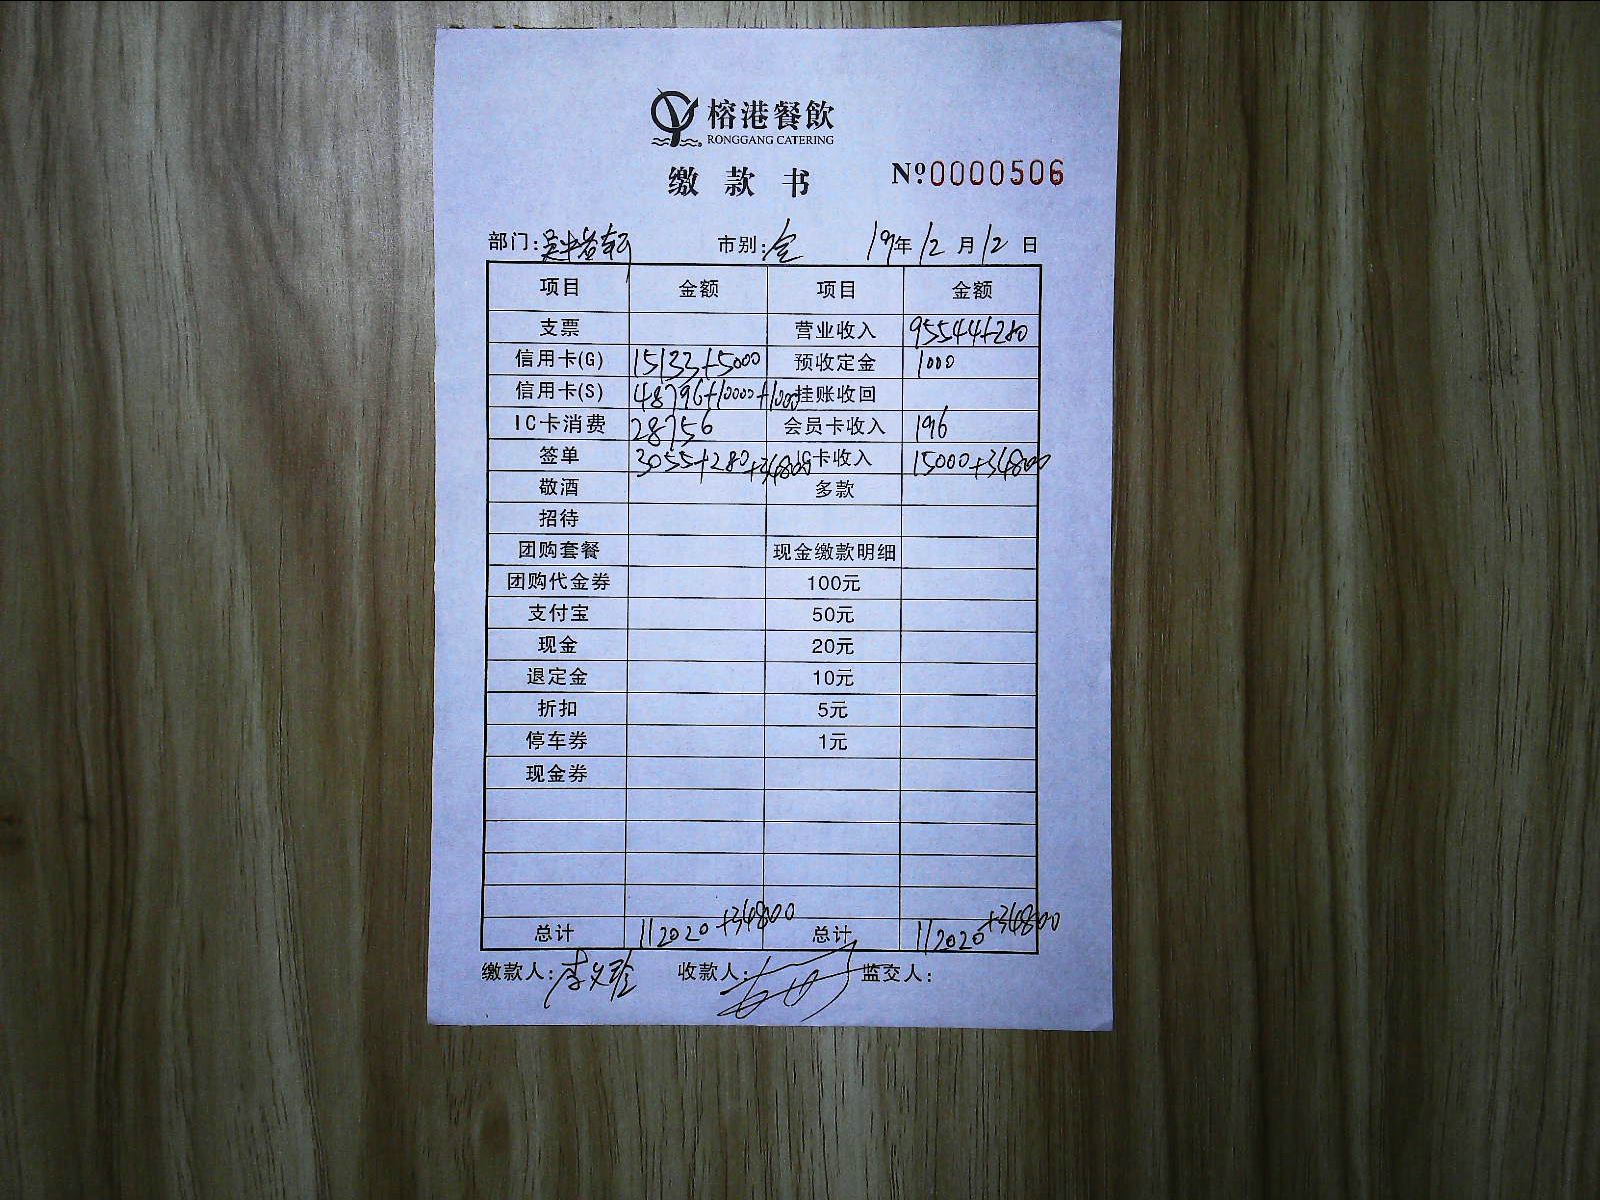 榕港餐飲
RONGGANG CATERING
缴款书 №0000506
部门: 市别:全 19年12月12日
项目 金额 项目 金额
支票 营业收入 95544+280
信用卡(G) 15133+5000 预收定金 1000
信用卡(S) 48796+10000+1000 挂账收回
IC卡消费 28756 会员卡收入 196
签单 3055+280+34800 IC卡收入 15000+34800
敬酒 多款
招待
团购套餐 现金缴款明细
团购代金券 100元
支付宝 50元
现金 20元
退定金 10元
折扣 5元
停车券 1元
现金券
总计 112020+34800 总计 112020+34800
缴款人: 收款人: 监交人: